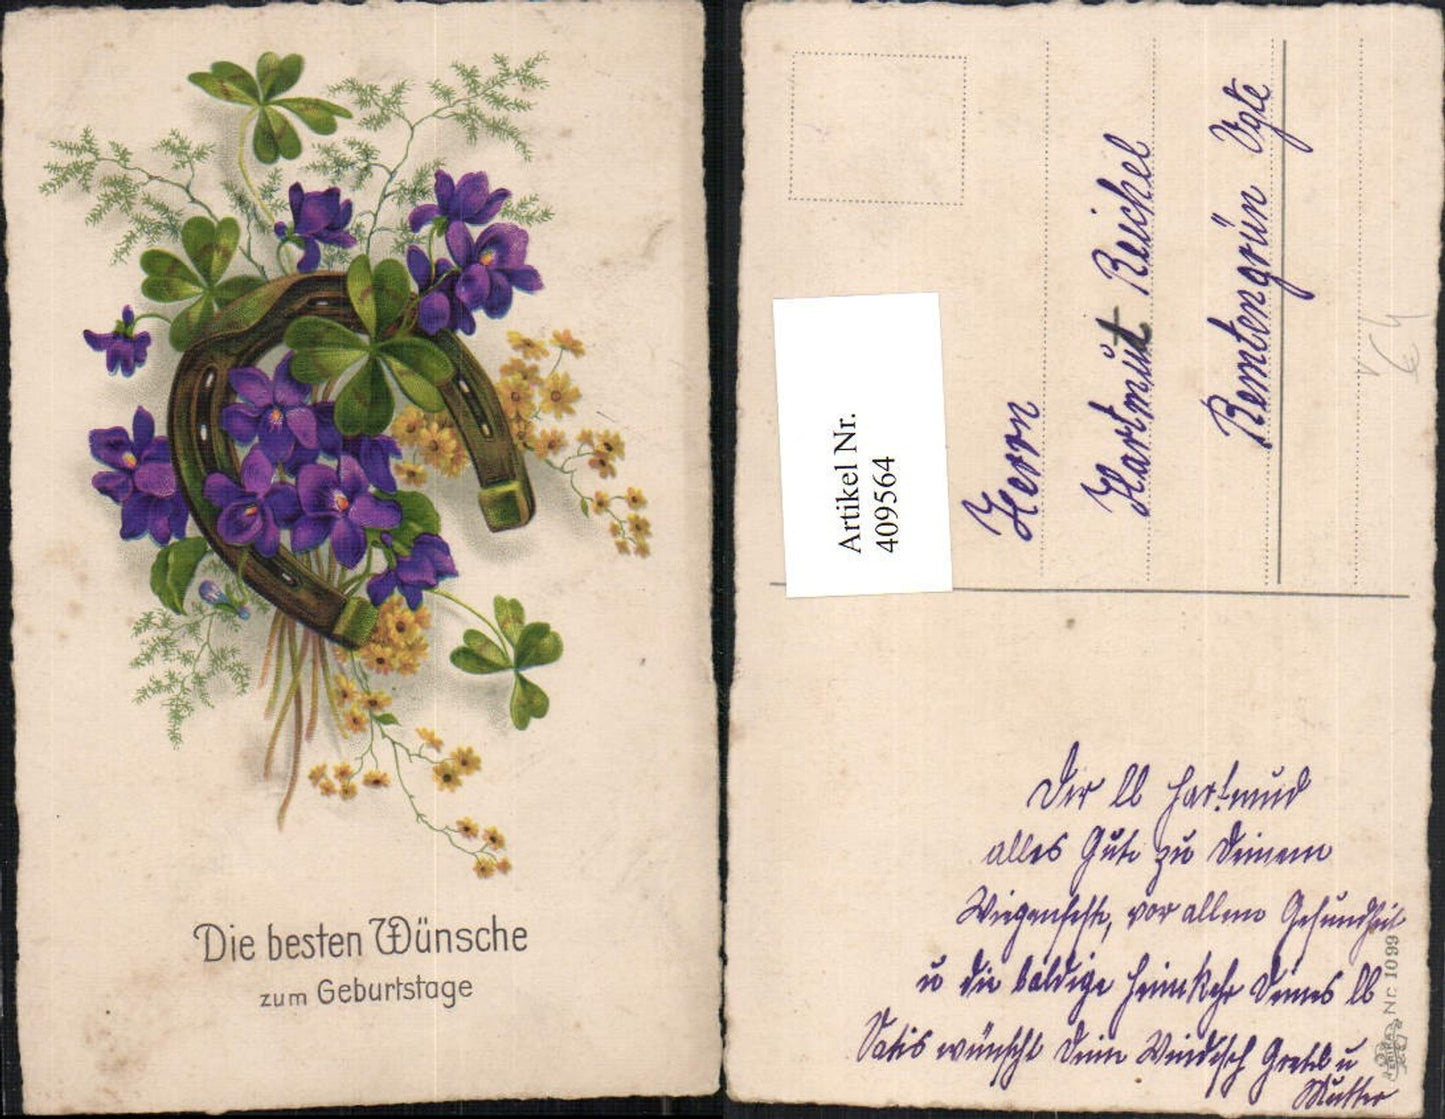 Die besten Wünsche
zum Geburtstage
Artikel Nr.
409564
Herrn
Hartmut Reichel
Remtengrün Vgtl
64
Dir lb Hartmud
alles Gute zu Deinem
Wiegenfeste, vor allem Gesundheit
u die baldige Heimkehr Deines lb
Vatis wünscht Dein Gretel u
Mutter
Nr. 1099